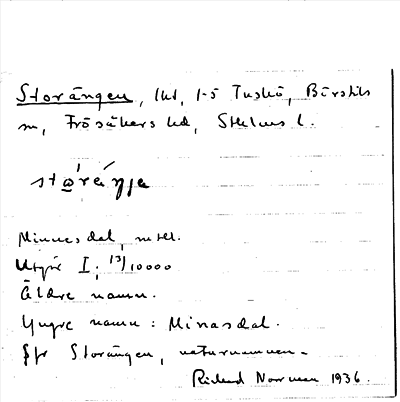 Storängen, lht, 1-5 Tuskö, Börstils
sn, Frösåkers hd, Sthlms l.
Minnesdal, mtl.
Utgör I; 13/10000
Äldre namn.
Yngre namn: Minnasdal.
Jfr Storängen, naturnamnen.
Rickard Norman 1936.